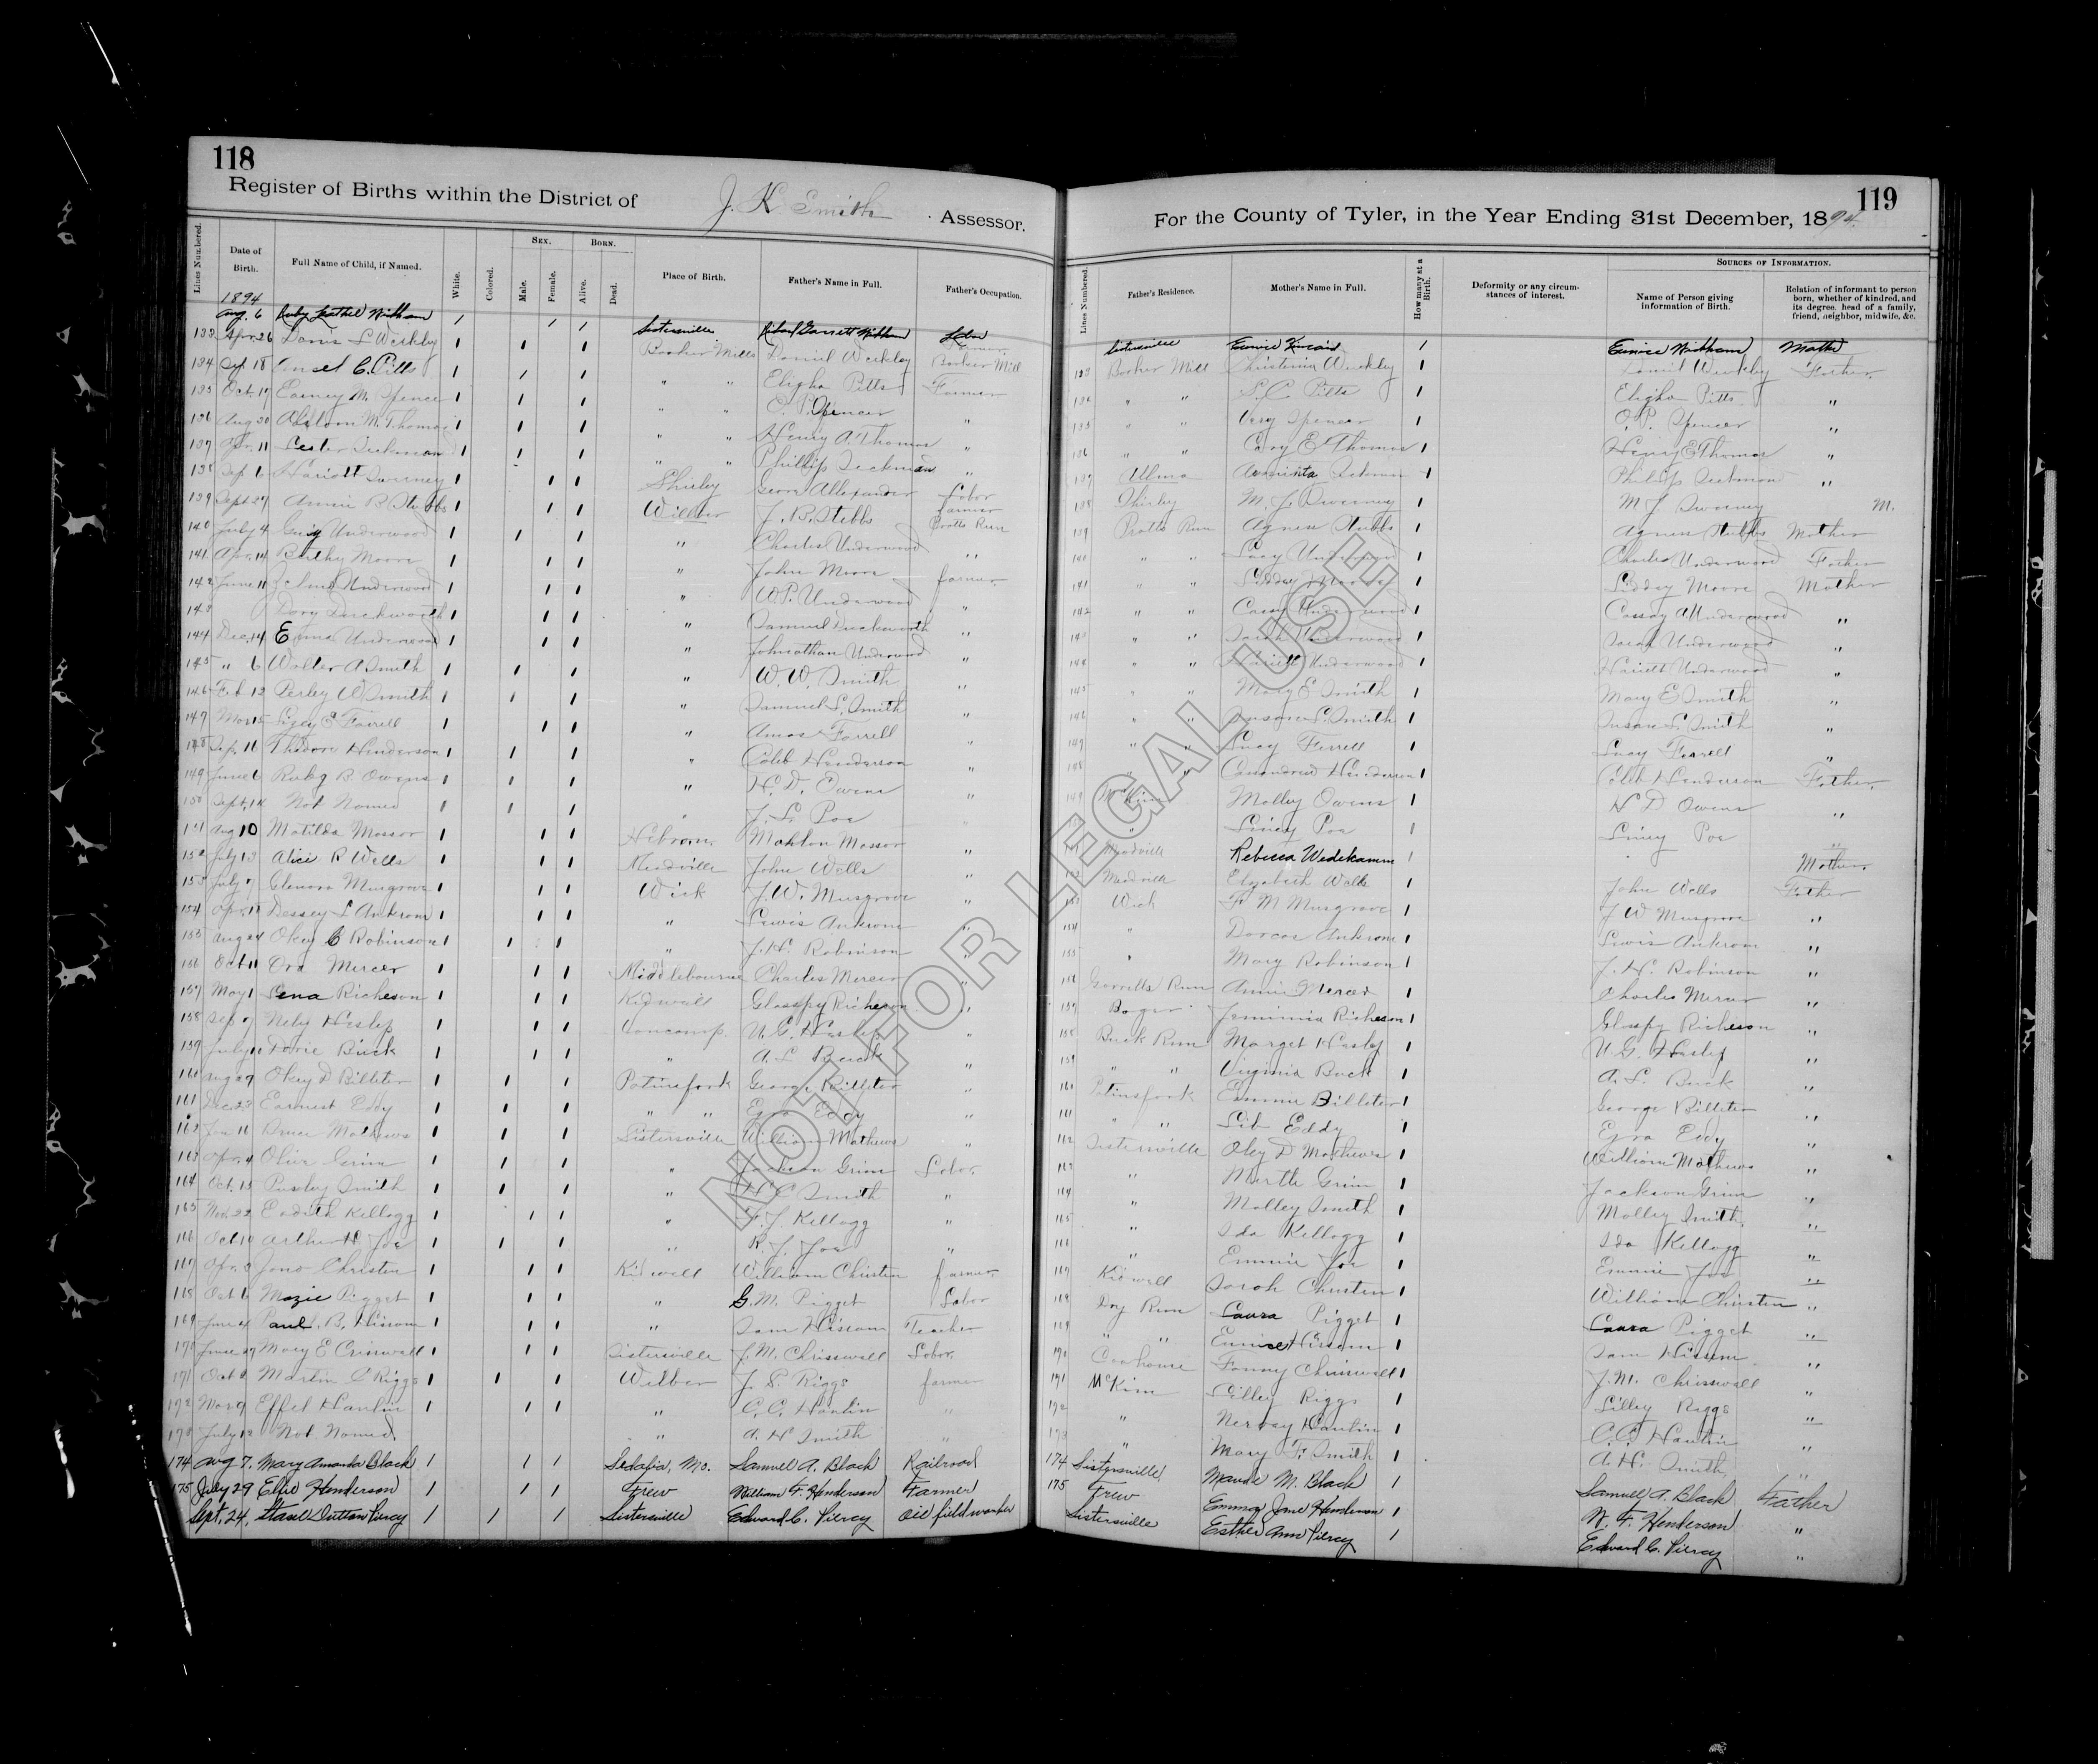 118
Register of Births within the District of J. K Smith Assessor.
Lines Numbered. Date of Birth. Full Name of Child, if Named. White. Colored. Sex. Male. Female. Born. Alive. Dead. Place of Birth. Father's Name in Full. Father's Occupation.
1894
Aug. 6 Ruby Witham Sistersville Richard Garrett Witham Labor
133 Apr. 26 L Weekley Booker Mills Daniel Weekley Farmer
134 Sep 18 C. Pitts " " Eligha Pitts Booker Mill
135 Oct. 17 M. Spencer " " O. P. Spencer Farmer
136 Aug 30 M. Thomas " " Henry A. Thomas "
137 Apr. 11 Lester Tuckman " " Phillip Tuckman "
138 Sep 6 Hariett Sweeney Shirley Geore Allexander Labor
139 Sept 27 Annie B Stubbs Wilber J. B. Stubbs farmer Pratts Run
140 July 4 Underwood " Charles Underwood "
141 Apr. 14 Birthy Moore " John Moore farmer
142 June 11 Underwood " W. P. Underwood "
143 Dory Duckworth " Samuel Duckworth "
144 Dec. 14 Emma Underwood " Johnathan Underwood "
145 " 6 Walter A Smith " W. W. Smith "
146 Feb 12 Perley W Smith " Samuel L. Smith "
147 Mar 15 Lizey E Farrell " Amos Farrell "
148 Sep. 16 Thedore Henderson " Caleb Henderson "
149 June 6 Ruby B. Owens " H. D. Owens "
150 Sept. 14 Not Named " J. L. Poe "
151 Aug 10 Matilda Mossor Hebron. Mahlon Mossor "
152 July 13 Alice R Wells Meadville John Wells "
153 July 7 Clenora Musgrove Wick J. W. Musgrove "
154 Apr. 18 Dessey L Ankrom " Lewis Ankrom "
155 Aug 24 Okey C Robinson " J. H. Robinson "
156 Oct 11 Ora Mercer Middlebourne Charles Mercer "
157 May 1 Lena Richeson Kidwell Glasspy Richeson "
158 Sep 7 Nely Haslip Concamp. U. G. Haslip "
159 July Dovie Buck " A. L Buck "
160 Aug 29 Okey D Billiter Potinsfork George Billiter "
161 Dec 23 Earnest Eddy " " Ezra Eddy "
162 Jan 16 Mathews Sistersville William Mathews "
163 Apr. 4 Oliver Grim " Jackson Grim Labor.
164 Oct. 13 Pursley Smith " H C Smith "
165 Nov. 22 Eadith Kellogg " F. J. Kellogg "
166 Oct 10 Arthur H Joe " R. J. Joe "
167 Apr. 3 Jono Christen Kidwell William Christen farmer
168 Oct 6 Mazie Pigget " G. M. Pigget Labor
169 June 4 Paul. B. Hissom " Sam Hissom Teacher
170 June 27 Mary E Crisswell Sistersville J. M. Chrisswell Labor.
171 Oct 2 Martin C Riggs Wilber J. S. Riggs farmer
172 Mar 9 Effel Hanlin " C. C. Hanlin "
173 July 12 Not Named. " A. H Smith "
174 Aug 7. Mary Amanda Black Sedalia, Mo. Samuel A. Black Railroad
175 July 29 Elsie Henderson Frew William F. Henderson Farmer
Sept. 24, Stasel Dutton Piercy Sistersville Edward C. Piercy oil field worker
119
For the County of Tyler, in the Year Ending 31st December, 1894.
Lines Numbered. Father's Residence. Mother's Name in Full. How many at a Birth. Deformity or any circumstances of interest. Sources of Information. Name of Person giving information of Birth. Relation of informant to person born, whether of kindred, and its degree, head of a family, friend, neighbor, midwife, &c.
Sistersville Eunice Kincaid 1 Eunice Witham Mother
133 Booker Mill Christenia Weekley 1 Daniel Weekley Father.
134 " " S. C Pitts 1 Eligha Pitts "
135 " " Very Spencer 1 O. P. Spencer "
136 " " Cary E Thomas 1 Henry E Thomas "
137 Alma Tuckman 1 Philip Tuckman "
138 Shirley M. J. Sweeney 1 M J Sweeney M.
139 Pratts Run Agness Stubbs 1 Agness Stubbs Mother
140 " " Lucy Underwood 1 Charles Underwood Father
141 " " Liddey Moore 1 Liddey Moore Mother
142 " " Cassy Underwood 1 Cassay A Underwood "
143 " " Sarah Underwood 1 Sarah Underwood "
144 " " Hariett Underwood 1 Hariett Underwood "
145 " " Mary E Smith 1 Mary E Smith "
146 " " Susan L. Smith 1 Susan L. Smith "
147 " " Lucy Ferrell 1 Lucy Ferrell "
148 " " Henderson 1 Caleb Henderson Father.
149 McKim Molley Owens 1 H D Owens "
" Liney Poe 1 Liney Poe "
151 Meadville Rebecca Wedekamm 1 Mother.
152 Meadville Elizabeth Wells 1 John Wells Father
153 Wick F. M Musgrove 1 J W Musgrove "
154 " Dorcas Ankrom 1 Lewis Ankrom "
155 " Mary Robinson 1 J. H. Robinson "
156 Gorrells Run Annie Mercer 1 Charles Mercer "
157 Boger Jemimia Richeson 1 Glaspy Richeson "
158 Buck Run Marget Haslip 1 U. G. Haslip "
159 " " Virginia Buck 1 A. L. Buck "
160 Potinsfork Emmie Billiter 1 George Billiter "
161 " " Lib Eddy 1 Ezra Eddy "
162 Sistersville Oley D Mathews 1 William Mathews "
163 " Mirtle Grim 1 Jackson Grim "
164 " Molley Smith 1 Molley Smith. "
165 " Ida Kellogg 1 Ida Kellogg "
166 " Emmie Joe 1 Emmie Joe "
167 Kidwell Sarah Christen 1 William Christen "
168 Dry Run Laura Pigget 1 Laura Pigget "
169 " " Eunice Hissom 1 Sam Hissom "
170 Conhouse Fanny Chrisswell 1 J. M. Chrisswell "
171 McKim Lilley Riggs 1 Lilley Riggs "
172 " Nervey Hanlin 1 C. C. Hanlin "
173 " Mary F. Smith 1 A. H. Smith "
174 Sistersville Maude M. Black 1 Samuel A. Black Father
175 Frew Emma Jane Henderson 1 W. F. Henderson "
Sistersville Esther Ann Piercy 1 Edward C. Piercy "
NOT FOR LEGAL USE